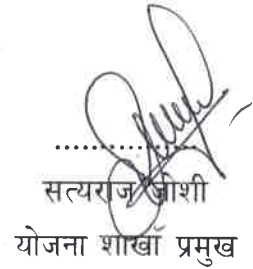 ....................
सत्यराज जोशी
योजना शाखा प्रमुख